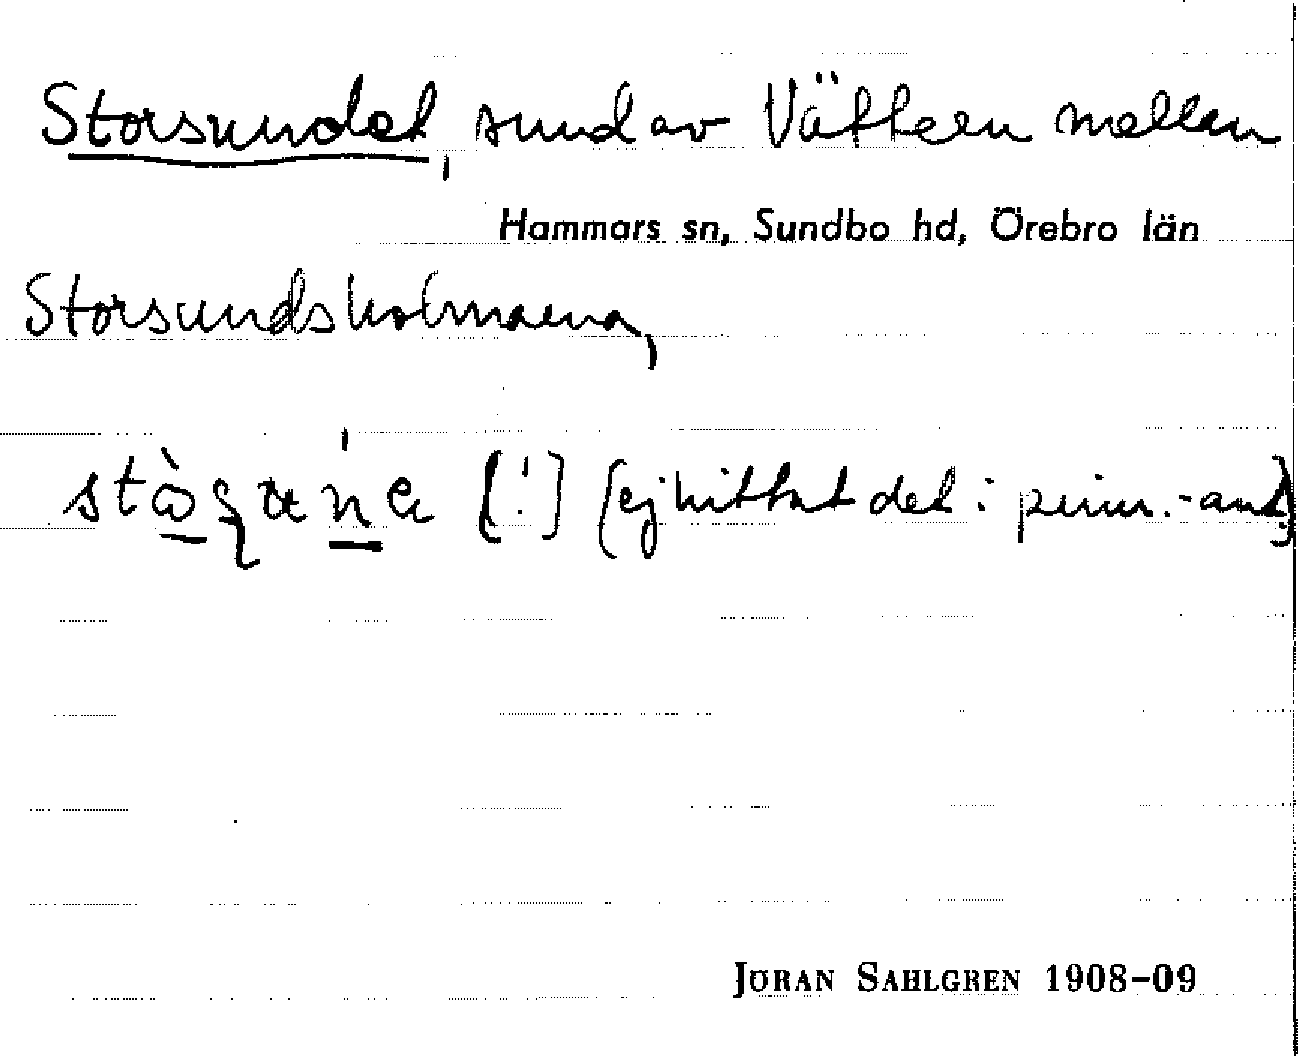 Storsundet, sund av Vättern mellan
Hammars sn, Sundbo hd, Örebro län
Storsundsholmarna,
[!] (ej hittat det i prim.-ant.)
JÖRAN SAHLGREN 1908-09